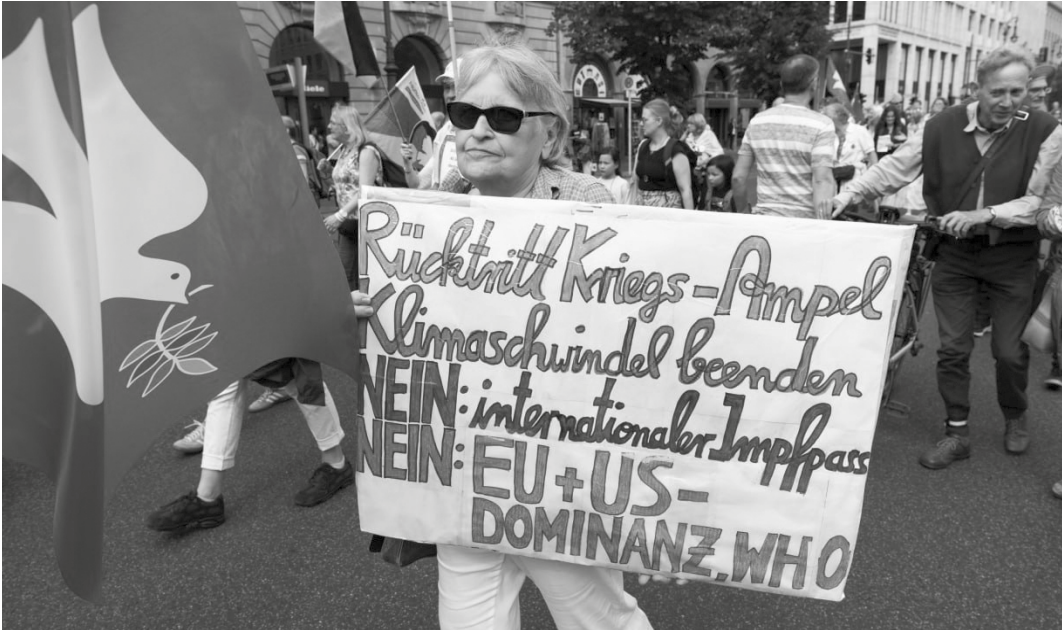 Rücktritt Kriegs-Ampel
Klimaschwindel beenden
NEIN: internationaler Impfpass
NEIN: EU+US-
DOMINANZ, WHO